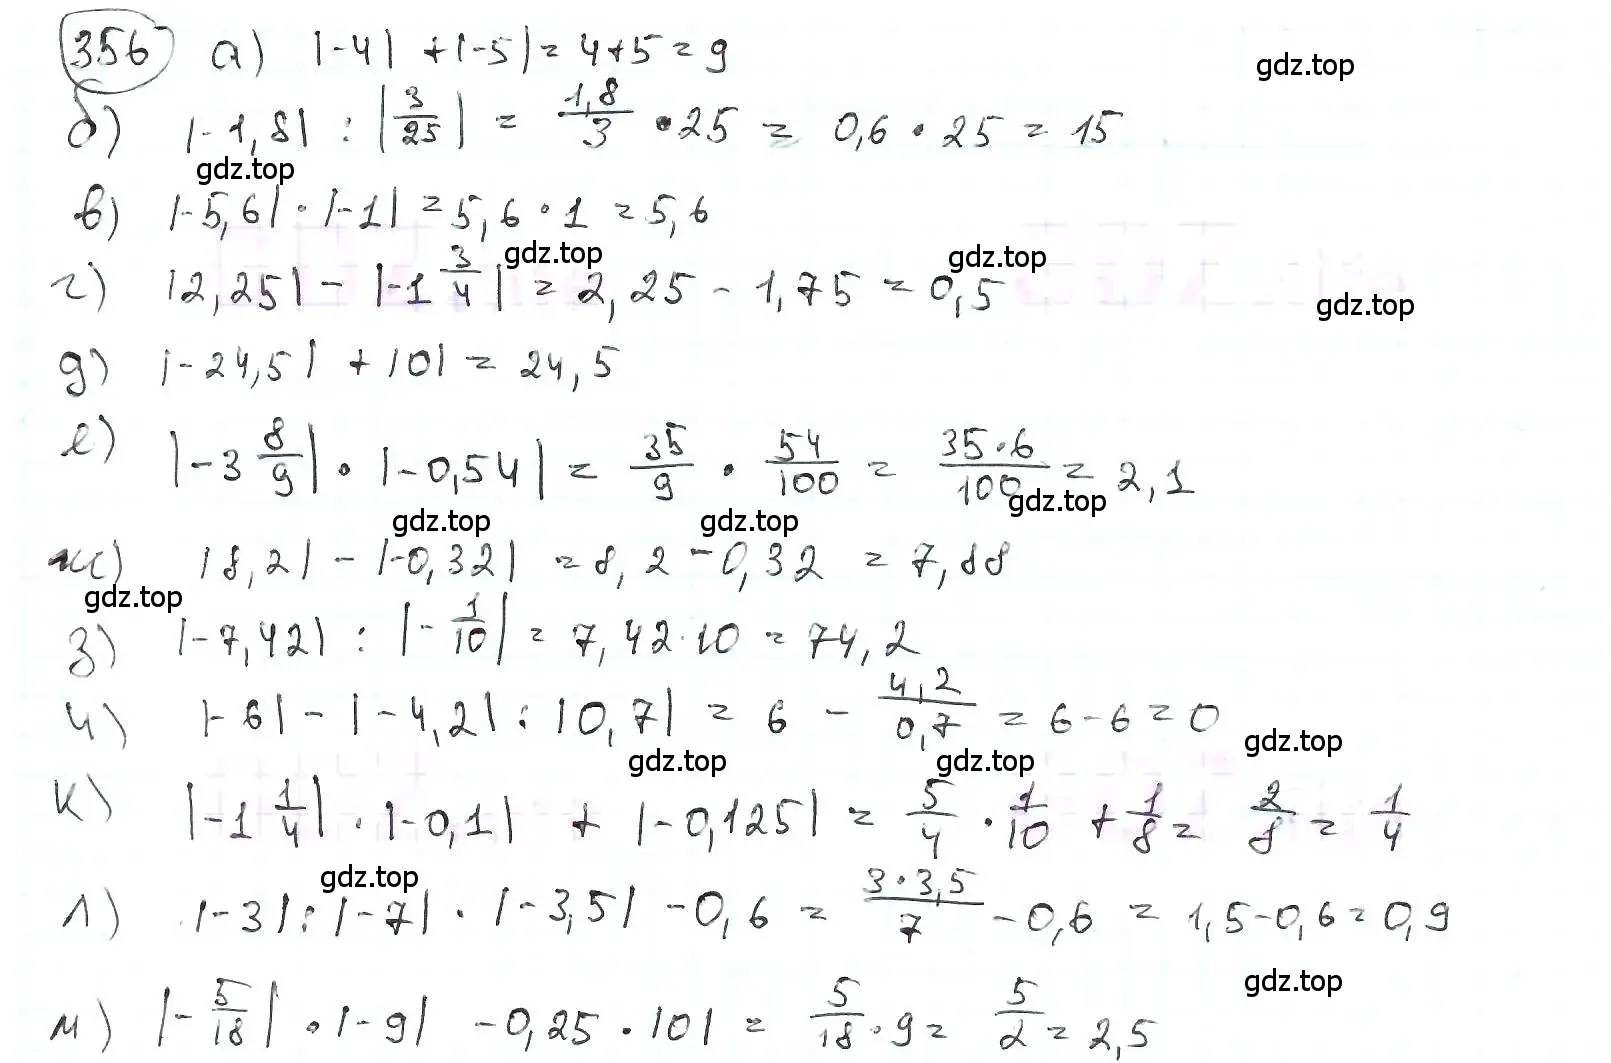 356 а) |-4| + |-5| = 4+5 = 9
б) |-1,8| : |3/25| = 1,8/3 • 25 = 0,6 • 25 = 15
gdz.top
gdz.top
в) |-5,6| · |-1| = 5,6 · 1 = 5,6
gdz.top
gdz.top
г) |2,25| - |-1 3/4| = 2,25 - 1,75 = 0,5
gdz.top
д) |-24,5| + |0| = 24,5
е) |-3 8/9| • |-0,54| = 35/9 · 54/100 = 35·6/100 = 2,1
gdz.top
gdz.top
gdz.top
ж) |8,2| - |-0,32| = 8,2 - 0,32 = 7,88
gdz.top
з) |-7,42| : |-1/10| = 7,42·10 = 74,2
и) |-6| - |-4,2| : |0,7| = 6 - 4,2/0,7 = 6-6 = 0
gdz.top
gdz.top
gdz.top
к) |-1 1/4| · |-0,1| + |-0,125| = 5/4 · 1/10 + 1/8 = 2/8 = 1/4
gdz.top
л) |-3| : |-7| · |-3,5| - 0,6 = 3·3,5/7 - 0,6 = 1,5-0,6 = 0,9
gdz.top
м) |-5/18| • |-9| - 0,25 · |0| = 5/18 · 9 = 5/2 = 2,5